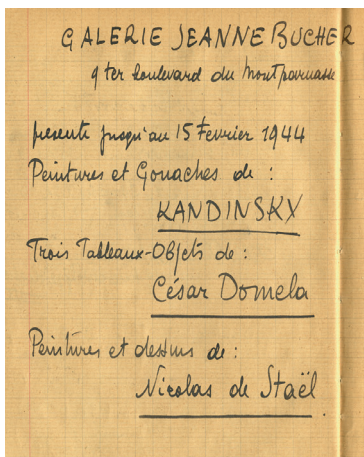 GALERIE JEANNE BUCHER
9 ter boulevard du Montparnasse
présente jusqu'au 15 Février 1944
Peintures et Gouaches de :
KANDINSKY
Trois Tableaux-Objets de :
César Domela
Peintures et dessins de :
Nicolas de Staël.